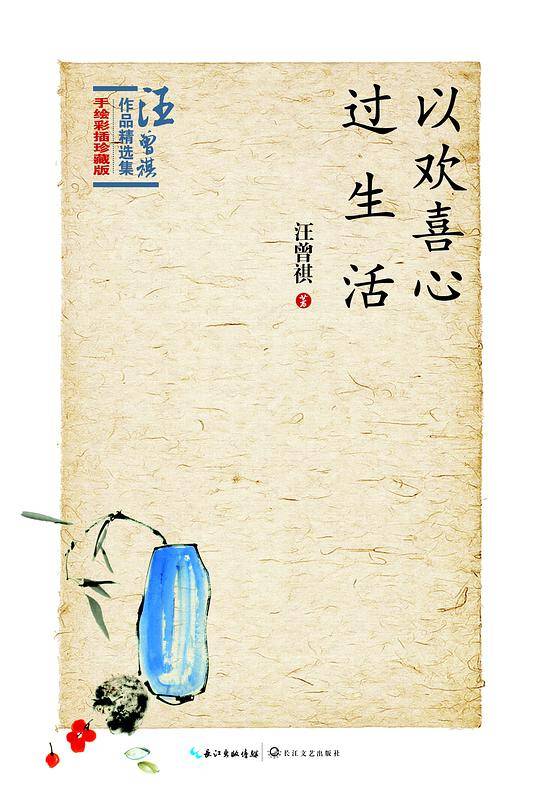 以欢喜心
过生活
汪曾祺
著
汪曾祺
作品精选集
手绘彩插珍藏版
长江出版传媒
长江文艺出版社